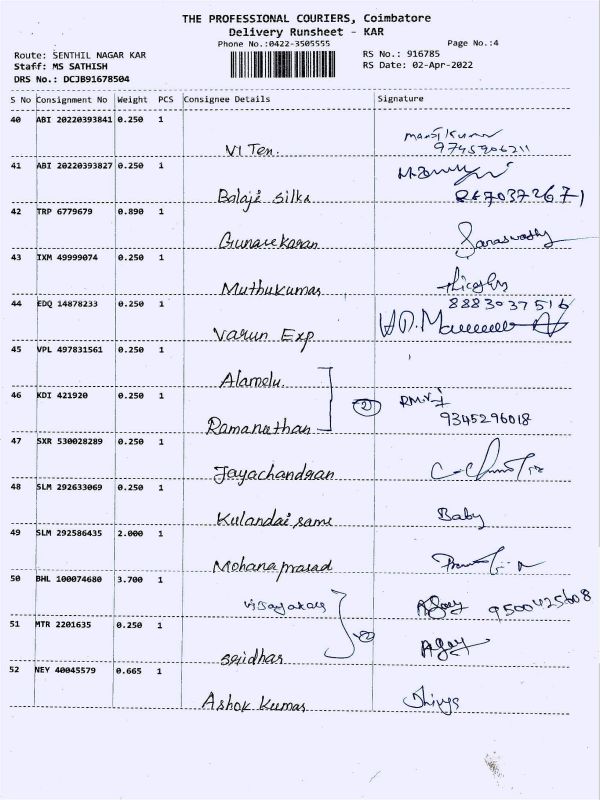 THE PROFESSIONAL COURIERS, Coimbatore
Delivery Runsheet - KAR
Phone No.:0422-3505555 Page No.:4
Route: SENTHIL NAGAR KAR RS No.: 916785
Staff: MS SATHISH RS Date: 02-Apr-2022
DRS No.: DCJB91678504
S No Consignment No Weight PCS Consignee Details Signature
40 ABI 20220393841 0.250 1
VI Ten. 9745906211
41 ABI 20220393827 0.250 1
Balaji Silks 8870372671
42 TRP 6779679 0.890 1
Gunasekaran Saraswathy
43 IXM 49999074 0.250 1
Muthukumar
44 EDQ 14878233 0.250 1 8883037516
Varun Exp
45 VPL 497831561 0.250 1
Alamelu.
46 KDI 421920 0.250 1 2
Ramanathan 9345296018
47 SXR 530028289 0.250 1
Jayachandran
48 SLM 292633069 0.250 1
Kulandaisami Baby
49 SLM 292586435 2.000 1
Mohana prasad
50 BHL 100074680 3.700 1
Vijayakar Ajay 9500425608
51 MTR 2201635 0.250 1 2
Sridhar Ajay
52 NEY 40045579 0.665 1
Ashok Kumar Thivya